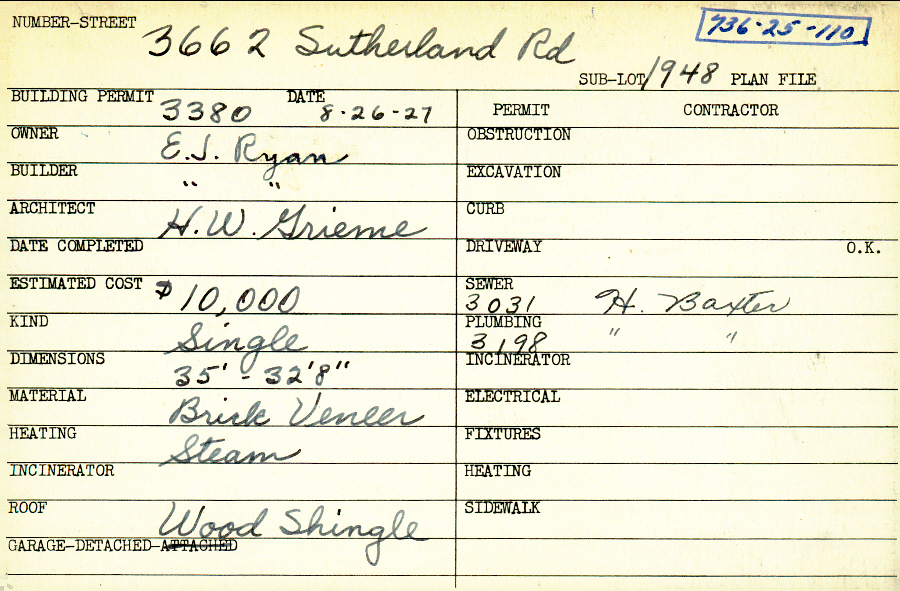 NUMBER-STREET 3662 Sutherland Rd 736-25-110
SUB-LOT 1948 PLAN FILE
BUILDING PERMIT 3380 DATE 8-26-27 PERMIT CONTRACTOR
OWNER E.J. Ryan OBSTRUCTION
BUILDER " " EXCAVATION
ARCHITECT H.W. Grieme CURB
DATE COMPLETED DRIVEWAY O.K.
ESTIMATED COST $10,000 SEWER 3031 H. Baxter
KIND Single PLUMBING 3198 " "
DIMENSIONS 35' - 32'8" INCINERATOR
MATERIAL Brick Veneer ELECTRICAL
HEATING Steam FIXTURES
INCINERATOR HEATING
ROOF Wood Shingle SIDEWALK
GARAGE-DETACHED-ATTACHED